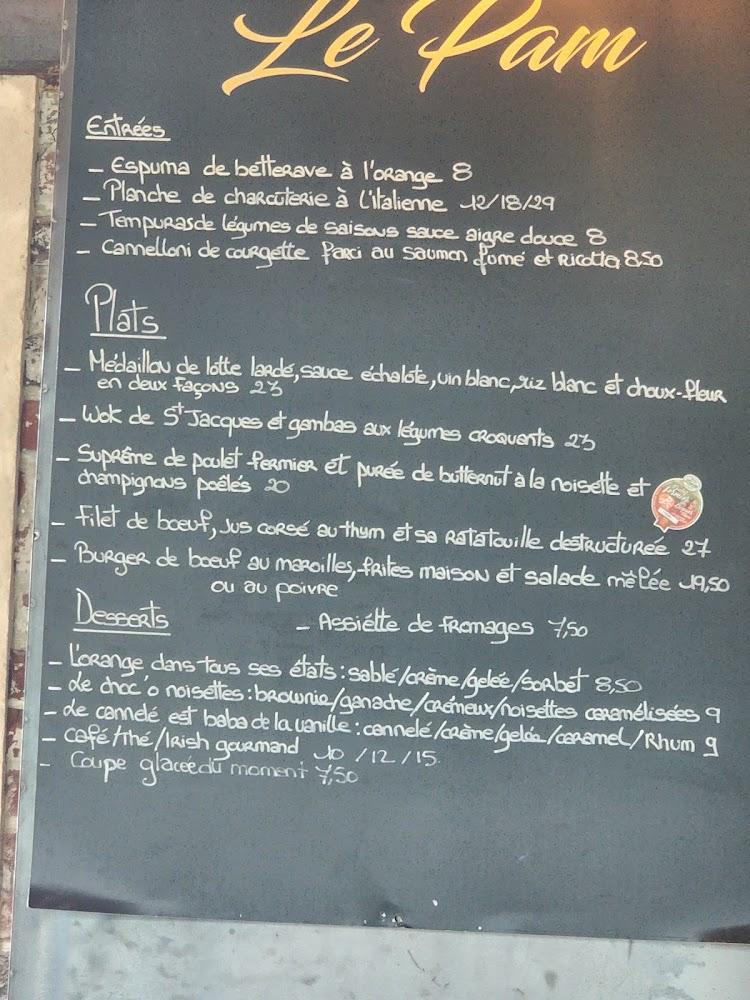 Le Pam
Entrées
- Espuma de betterave à l'orange 8
- Planche de charcuterie à l'italienne 12/18/29
- Tempuras de légumes de saisons sauce aigre douce 8
- Cannelloni de courgette farci au saumon fumé et Ricotta 8,50
Plats
- Médaillon de lotte lardé, sauce échalote, vin blanc, riz blanc et choux-fleur
en deux façons 23
- Wok de St Jacques et gambas aux légumes croquants 23
- Suprême de poulet fermier et purée de butternut à la noisette et
champignons poêlés 20
- Filet de bœuf, jus corsé au thym et sa Ratatouille destructurée 27
- Burger de bœuf au maroilles, frites maison et salade mêlée 19,50
ou au poivre
Desserts
- Assiétte de fromages 7,50
- L'orange dans tous ses états : sablé/crème/gelée/sorbet 8,50
- Le choc'o noisettes : brownie/ganache/crémeux/noisettes caramélisées 9
- Le cannelé est baba de la vanille : cannelé/crème/gelée/caramel/Rhum 9
- Café/thé/Irish gourmand 10/12/15
- Coupe glacée du moment 7,50